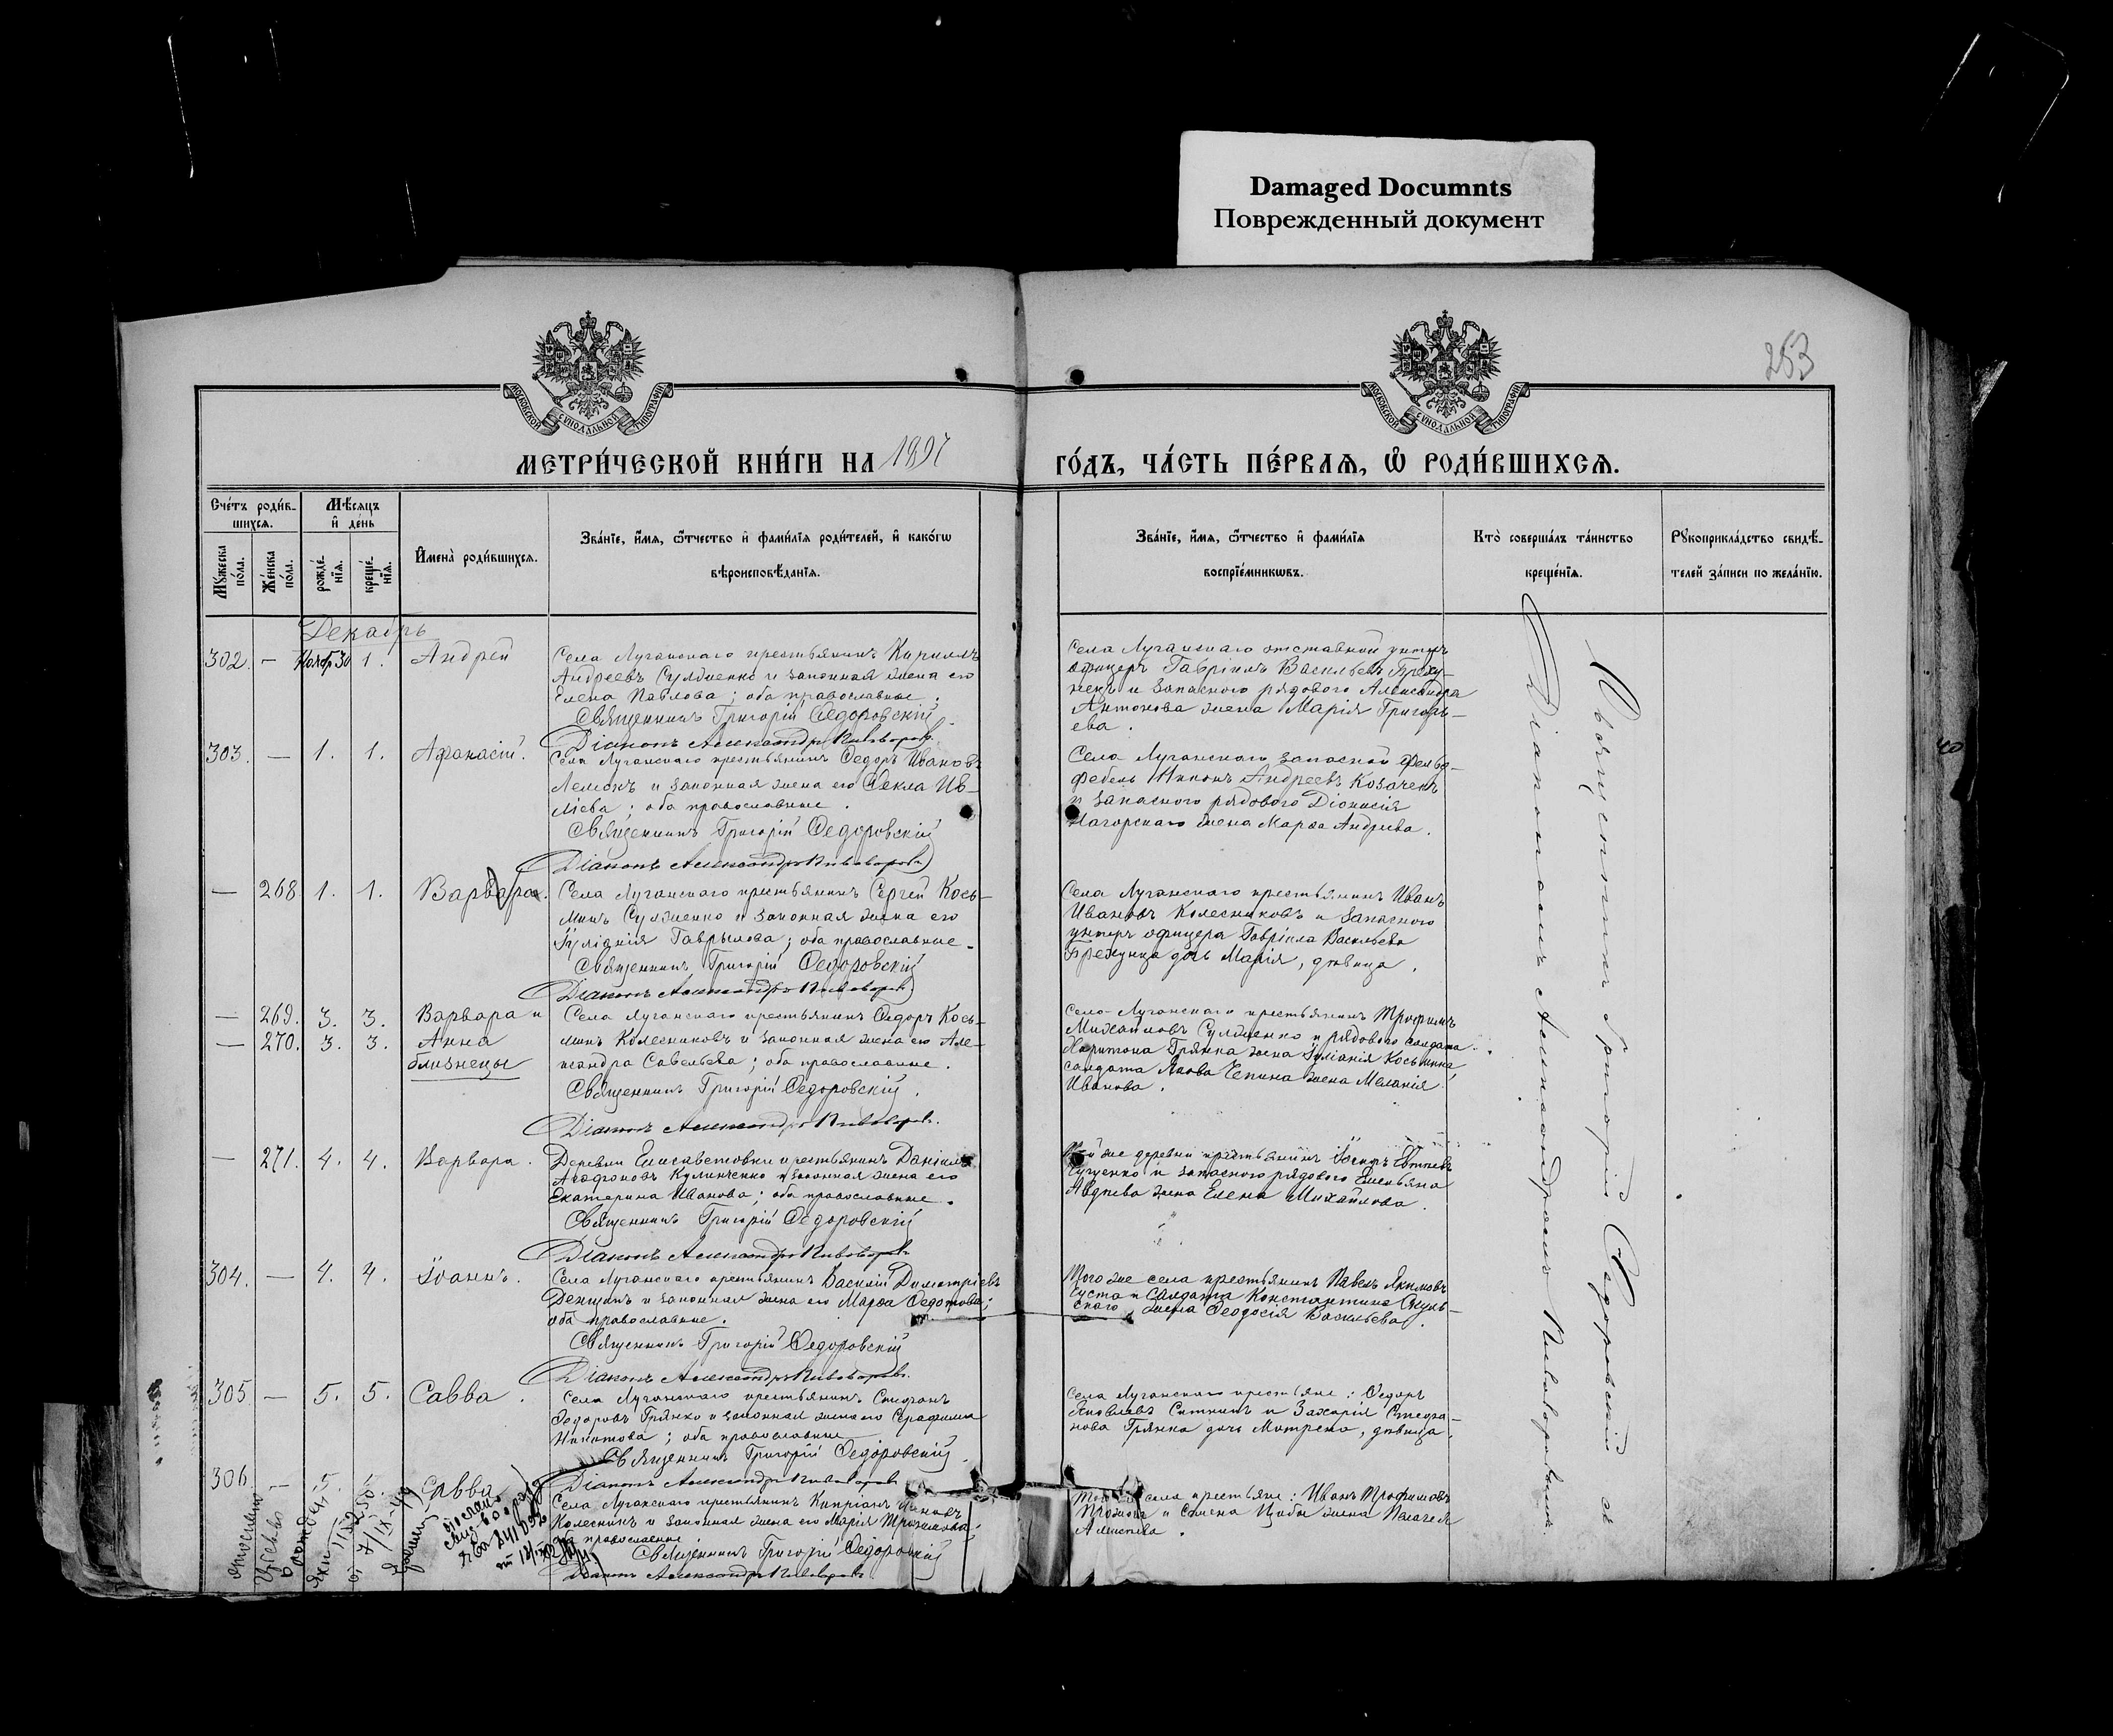 Damaged Documnts
Поврежденный документ
253
МОСКОВСКОЙ СУНОДАЛЬНОЙ ТИПОГРАФІИ
МОСКОВСКОЙ СУНОДАЛЬНОЙ ТИПОГРАФІИ
МЕТРИ́ЧЕСКОЙ КНИ́ГИ НА 1897
ГО́ДЪ, ЧА́СТЬ ПЕ́РВАѦ, Ѡ҆ РОДИ́ВШИХСѦ.
Сче́тъ роди́в-
шихсѧ.
Мꙋ́жеска по́ла.
Же́нска по́ла.
Мѣ́сяцъ
и҆ де́нь
рожде́-
нїѧ.
креще́-
нїѧ.
И҆мена̀ роди́вшихсѧ.
Зва́нїе, и҆́мѧ, ѻ҆́тчество и҆ фами́лїѧ роди́телей, и҆ како́гѡ
вѣроисповѣ́данїѧ.
Зва́нїе, и҆́мѧ, ѻ҆́тчество и҆ фами́лїѧ
воспрїе́мникѡвъ.
Кто̀ соверша́лъ та́инство
креще́нїѧ.
Рꙋкоприкла́дство свидѣ́-
телей за́писи по жела́нїю.
Декабрь
302. — Ноябр 30 1. Андрей
Села Луганскаго крестьянинъ Кириллъ
Андреевъ Сулименко и законная жена его
Елена Павлова; оба православные.
Священникъ Григорій Ѳедоровскій.
Діаконъ Александръ Пивоваровъ.
Села Луганскаго отставной унтеръ
офицеръ Гавріилъ Васильевъ Бреху-
нецъ и запаснаго рядового Александра
Антонова жена Марія Григорь-
ева.
303. — 1. 1. Аѳанасій.
Села Луганскаго крестьянинъ Ѳедоръ Ивановъ
и законная жена его Ѳекла Ив-
лiева; оба православные.
Священникъ Григорій Ѳедоровскій
Діаконъ Александръ Пивоваровъ
Села Луганскаго запасной фельд-
фебель Андреевъ Козаченк
и запаснаго рядового Діонисія
Нагорскаго жена Марѳа Андреева.
— 268 1. 1. Варвара.
Села Луганскаго крестьянинъ Сергей Кось-
минъ Сулименко и законная жена его
Гаврылова; оба православные.
Священникъ Григорій Ѳедоровскій
Діаконъ Александръ Пивоваровъ
Села Луганскаго крестьянинъ Иванъ
Ивановъ Колесниковъ и запаснаго
унтеръ офицера Гавріила Васильева
Брехунца дочь Марія, дѣвица.
— 269. 3. 3. Варвара и
— 270. 3. 3. Анна
близнецы
Села Луганскаго крестьянинъ Ѳедоръ Кось-
минъ Колесниковъ и законная жена его Але-
ксандра Савельева; оба православные.
Священникъ Григорій Ѳедоровскій.
Діаконъ Александръ Пивоваровъ.
Села Луганскаго крестьянинъ Трофимъ
Михайловъ Сулименко и рядового солдата
Харитона Грянка жена Іуліанія Косьмина,
солдата Якова Чепина жена Меланія
Иванова.
— 271. 4. 4. Варвара.
Деревни Елисаветовки крестьянинъ Даніилъ
Агаѳоновъ Кулинченко и законная жена его
Екатерина Иванова; оба православные.
Священникъ Григорій Ѳедоровскій
Діаконъ Александръ Пивоваровъ
же деревни крестьянинъ Іосифъ
и запаснаго рядового Емельяна
Авдѣева жена Елена Михайлова.
304. — 4. 4. Іоаннъ.
Села Луганскаго крестьянинъ Василій Димитріевъ
и законная жена его Марѳа Ѳедотова;
оба православные.
Священникъ Григорій Ѳедоровскій
Діаконъ Александръ Пивоваровъ.
Того же села крестьянинъ Павелъ Якимовъ
и солдата Константина
скаго жена Ѳеодосія Васильева.
305 — 5. 5. Савва.
Села Луганскаго крестьянинъ Стефанъ
Ѳедоровъ Грянко и законная жена его Серафима
Никитова; оба православные
Священникъ Григорій Ѳедоровскій.
Діаконъ Александръ Пивоваровъ
Села Луганскаго крестьяне: Ѳедоръ
Яковлевъ Ситникъ и Захарія Стефа-
нова Грянка дочь Матрена, дѣвица.
306 — 5. 5. Савва
Села Луганскаго крестьянинъ Кипріанъ
Колесникъ и законная жена его Марія Трофимова;
оба православные
Священникъ Григорій Ѳедоровскій
Діаконъ Александръ Пивоваровъ
села крестьяне: Иванъ Трофимовъ
и Семена жена Пелагея
Алексѣева.
Священникъ Григорій Ѳедоровскій съ
Діакономъ Александромъ Пивоваровымъ